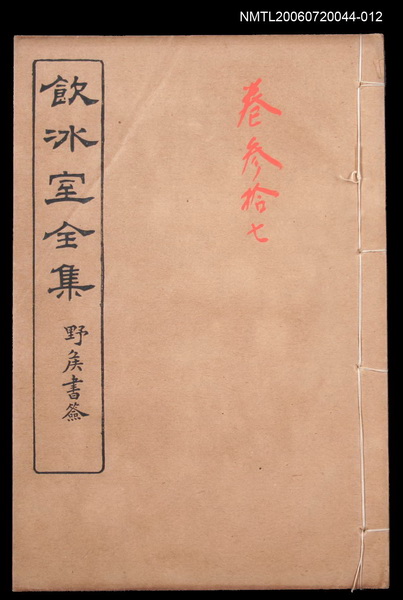 NMTL20060720044-012
卷参拾七
飲冰室全集
野矦書簽